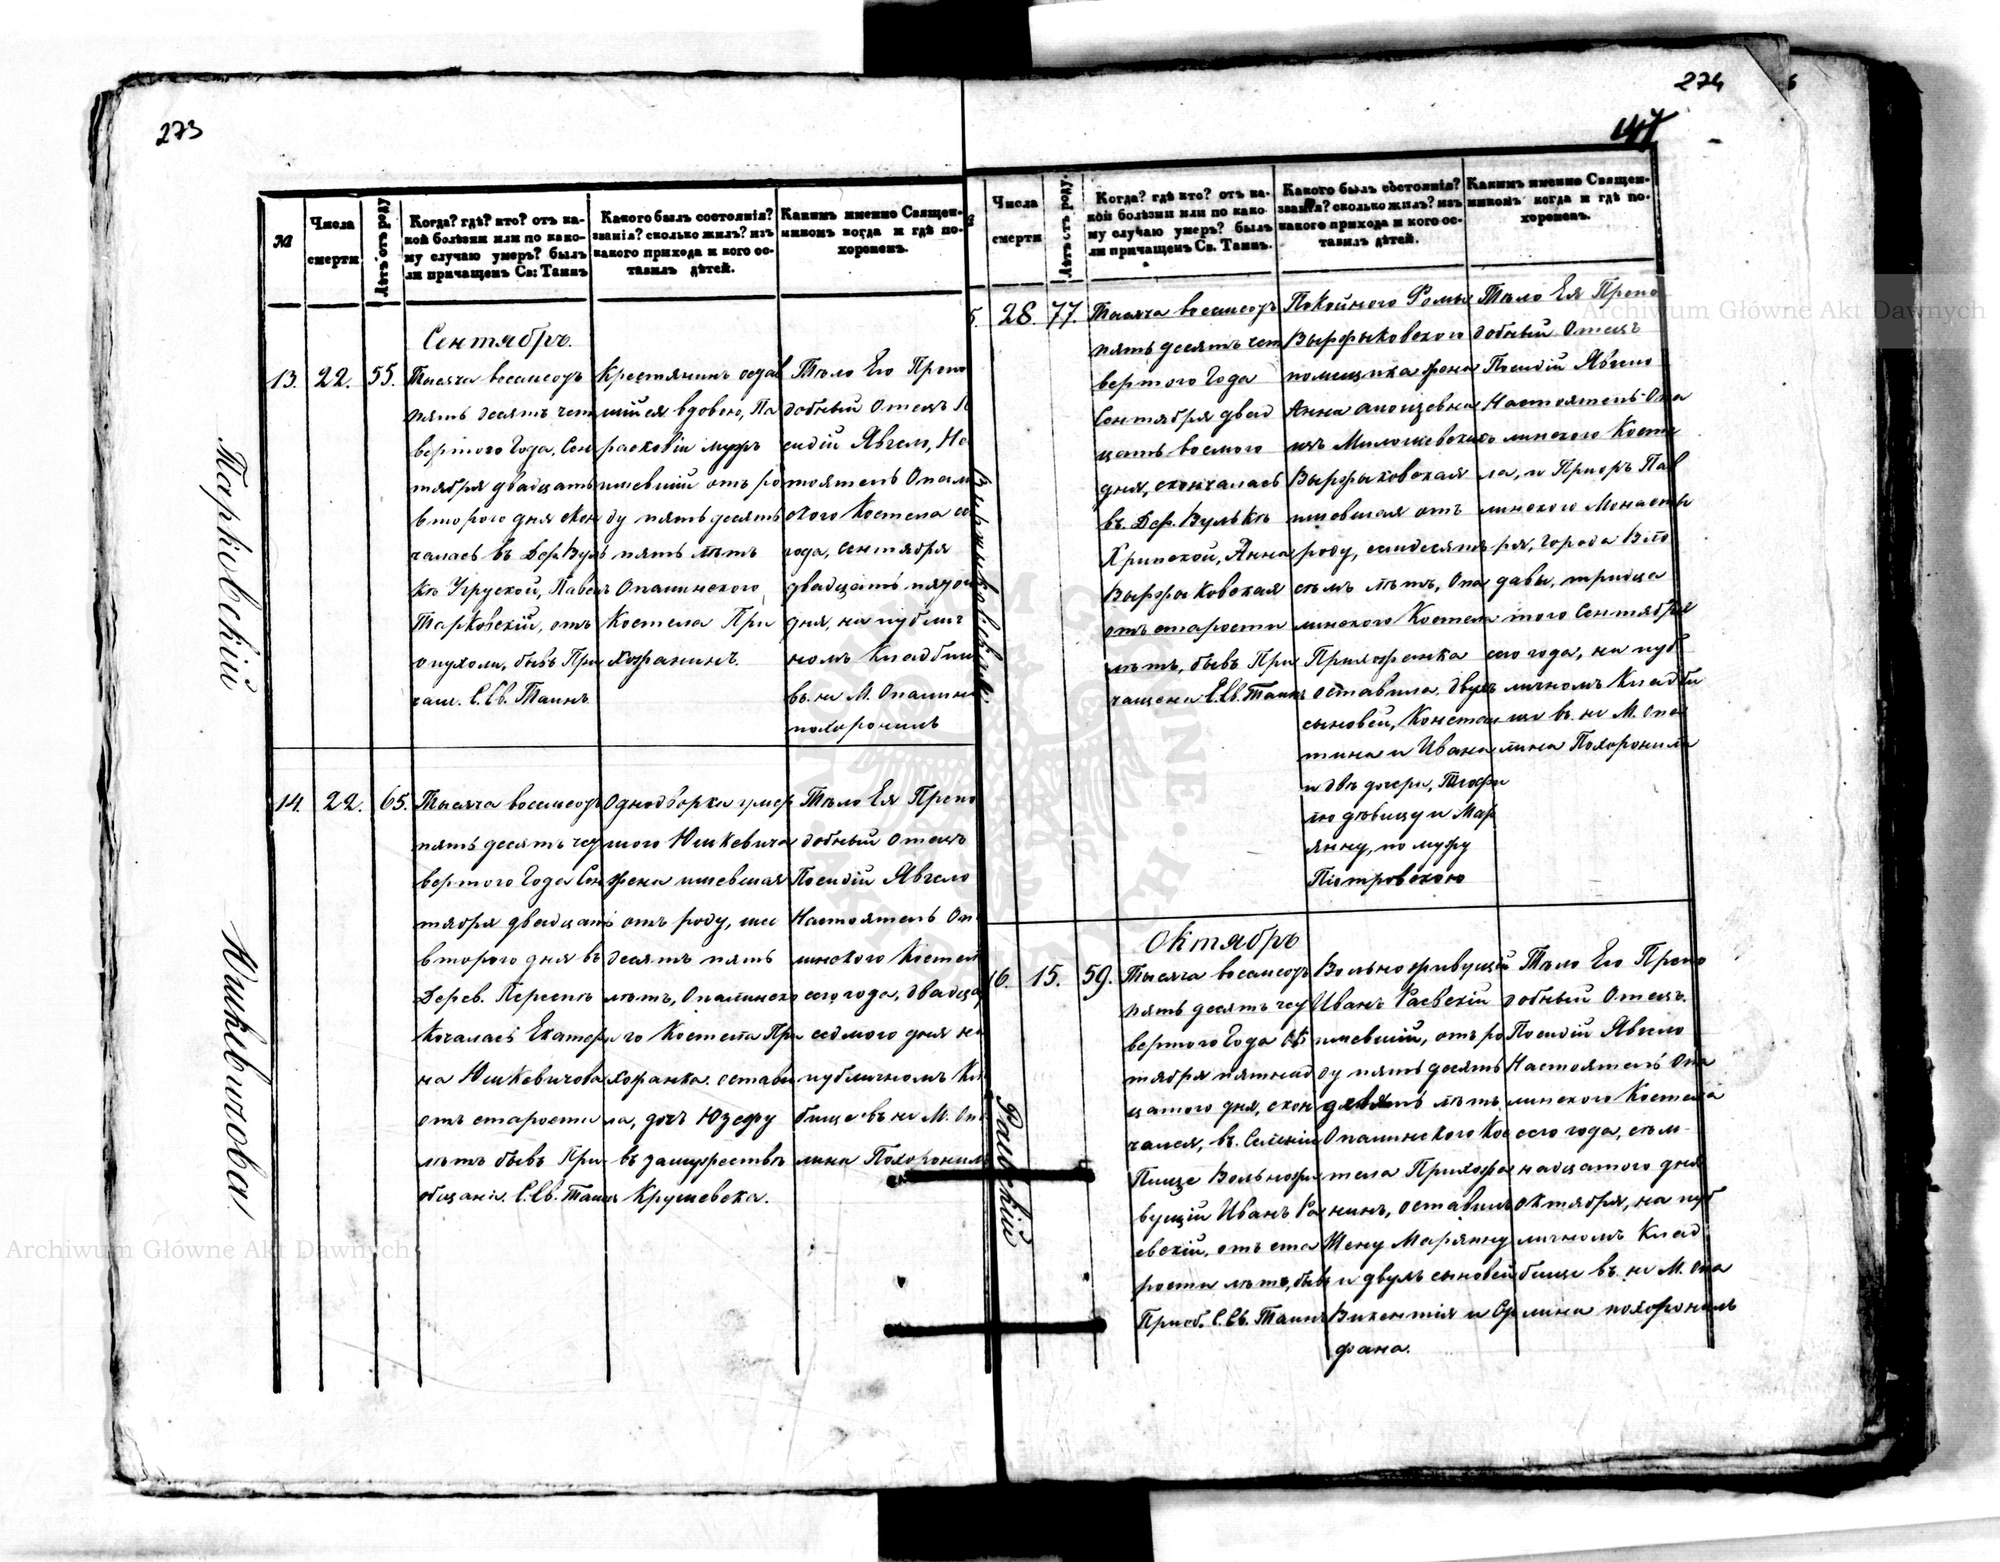 273
№
Числа смерти
Лѣтъ отъ роду
Когда? гдѣ? кто? отъ ка-
кой болѣзни или по како-
му случаю умеръ? былъ
ли причащенъ Св: Таинъ
Какого былъ состоянія?
званія? сколько жилъ? изъ
какого прихода и кого ос-
тавилъ дѣтей.
Какимъ именно Священ-
никомъ когда и гдѣ по-
хороненъ.
Сентябрь.
Тарковскій
13. 22. 55.
Тысяча восемсотъ
пять десятъ чет
вертого Года, Сен
тября двадцать
второго дня скон
чалась въ Дер. Вуль
кѣ Угруской, Павелъ
Тарковскій, отъ
опухоли, бывъ При
чащ. С. Св. Таинъ.
Крестянинъ остав
шійся вдовою, Па
расковіи мужъ
имевшій отъ ро
ду пять десятъ
пять лѣтъ
Опалинского
Костела При
хожанинъ.
Тѣло Его Препо
добный Отецъ П
сидій Явгел, На
тоятель Опали
ского Костела се
года, Сентября
двадцать пятого
дня, на публич
номъ Кладбищ
въ. на М. Опалин
похоронилъ
Юшкевичова
14. 22. 65.
Тысяча восемсотъ
пять десятъ чет
вертого Года Сен
тября двадцать
второго дня въ
Дерев. Переспѣ
кочалась Екатер
на Юшкевичова
отъ старости
лѣтъ бывъ При-
общана С. Св. Таинъ
Однодворка умер
шого Юшкевича
жена имевшая
отъ роду, шес
десятъ пять
лѣтъ, Опалинско
го Костела При
хожанка. остави
ла, дочъ Юзефу
въ замужествѣ
Крушевска.
Тѣло Ея Препо
добный Отецъ
Посидій Явгело
Настоятель Оп
линского Костел
сего года, двадца
седмого дня на
публичномъ Кл
бище въ на М. Оп
лина Похоронилъ
274
147
Числа смерти
Лѣтъ отъ роду.
Когда? гдѣ кто? отъ ка-
кой болѣзни или по како-
му случаю умеръ? былъ
ли причащенъ Св. Таинъ.
Какого былъ состоянія?
званія? сколько жилъ? изъ
какого прихода и кого ос-
тавилъ дѣтей.
Какимъ именно Священ-
никомъ когда и гдѣ по-
хороненъ.
5. 28. 77.
Тысяча восемсотъ
пять десятъ чет
вертого Года
Сентября двад
цать восмого
дня, скончалась
въ. Дер. Вулькѣ
Хрипской, Анна
Выржыковская
отъ старости
лѣтъ, бывъ При
чащена С. Св. Таинъ
Покойного Фомы
Выржыковского
помещика жена
Анна
изъ Милошевскихъ
Выржыковская
имевшая отъ
роду, семдесятъ
семъ лѣтъ, Опа
линского Костела
Прихожанка
оставила. двухъ
сыновей, Констан
тина и Ивана
и двѣ дочери, Теофи
лю дѣвицу и Мар
янну, по мужу
Піотровскою
Тѣло Ея Препо
добный Отецъ
Посидій Явгело
Настоятель Опа
линского Косте
ла, и Приоръ Пав
линского Монасты
ря, Города Вло
давы, тридца
того Сентября
сего года, на пуб
личномъ Кладби
ще въ. на М. Опа
лина Похоронилъ
Октябрь
Раевскій
16. 15. 59.
Тысяча восемсотъ
пять десятъ чет
вертого Года Ок
тября пятнад
цатого дня, скон
чался, въ. Селеніи
Пище Вольножи
вущій Иванъ Ра
евскій, отъ ста
рости лѣтъ, бывъ
Приоб. С. Св. Таинъ
Вольноживущій
Иванъ Раевскій
имевшій, отъ ро
ду пять десятъ
девять лѣтъ
Опалинского Кос
тела Прихожа
нинъ, оставилъ
Жену Марянну
и двухъ сыновей
Викентія и Сте
фана.
Тѣло Его Препо
добный Отецъ.
Посидій Явгело
Настоятель Опа
линского Костела
сего года, семъ-
надцатого дня
октября, на пуб
личномъ Клад
бище въ. на М. Опа
лина похоронилъ
Archiwum Główne Akt Dawnych
Archiwum Główne Akt Dawnych